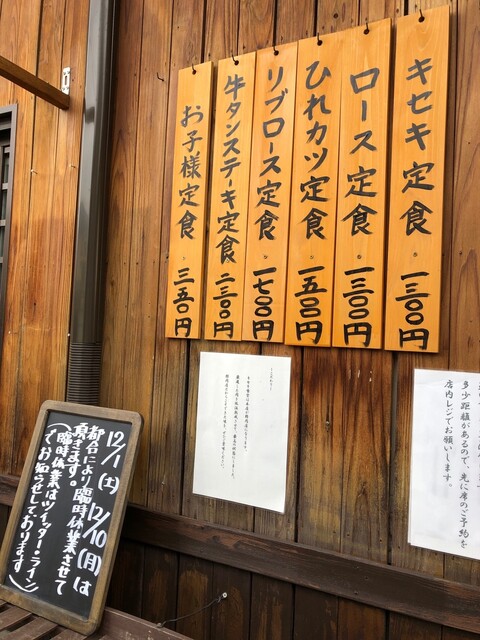 キセキ定食 一三〇〇円
ロース定食 一三〇〇円
ひれカツ定食 一五〇〇円
リブロース定食 一七〇〇円
牛タンステーキ定食 二三〇〇円
お子様定食 三五〇円
多少距離があるので、先に席のご予約を
店内レジでお願いします。
12/1(土)12/10(月)は
都合により臨時休業させて
頂きます。
(臨時休業はツイッター・ライン
でお知らせしております)